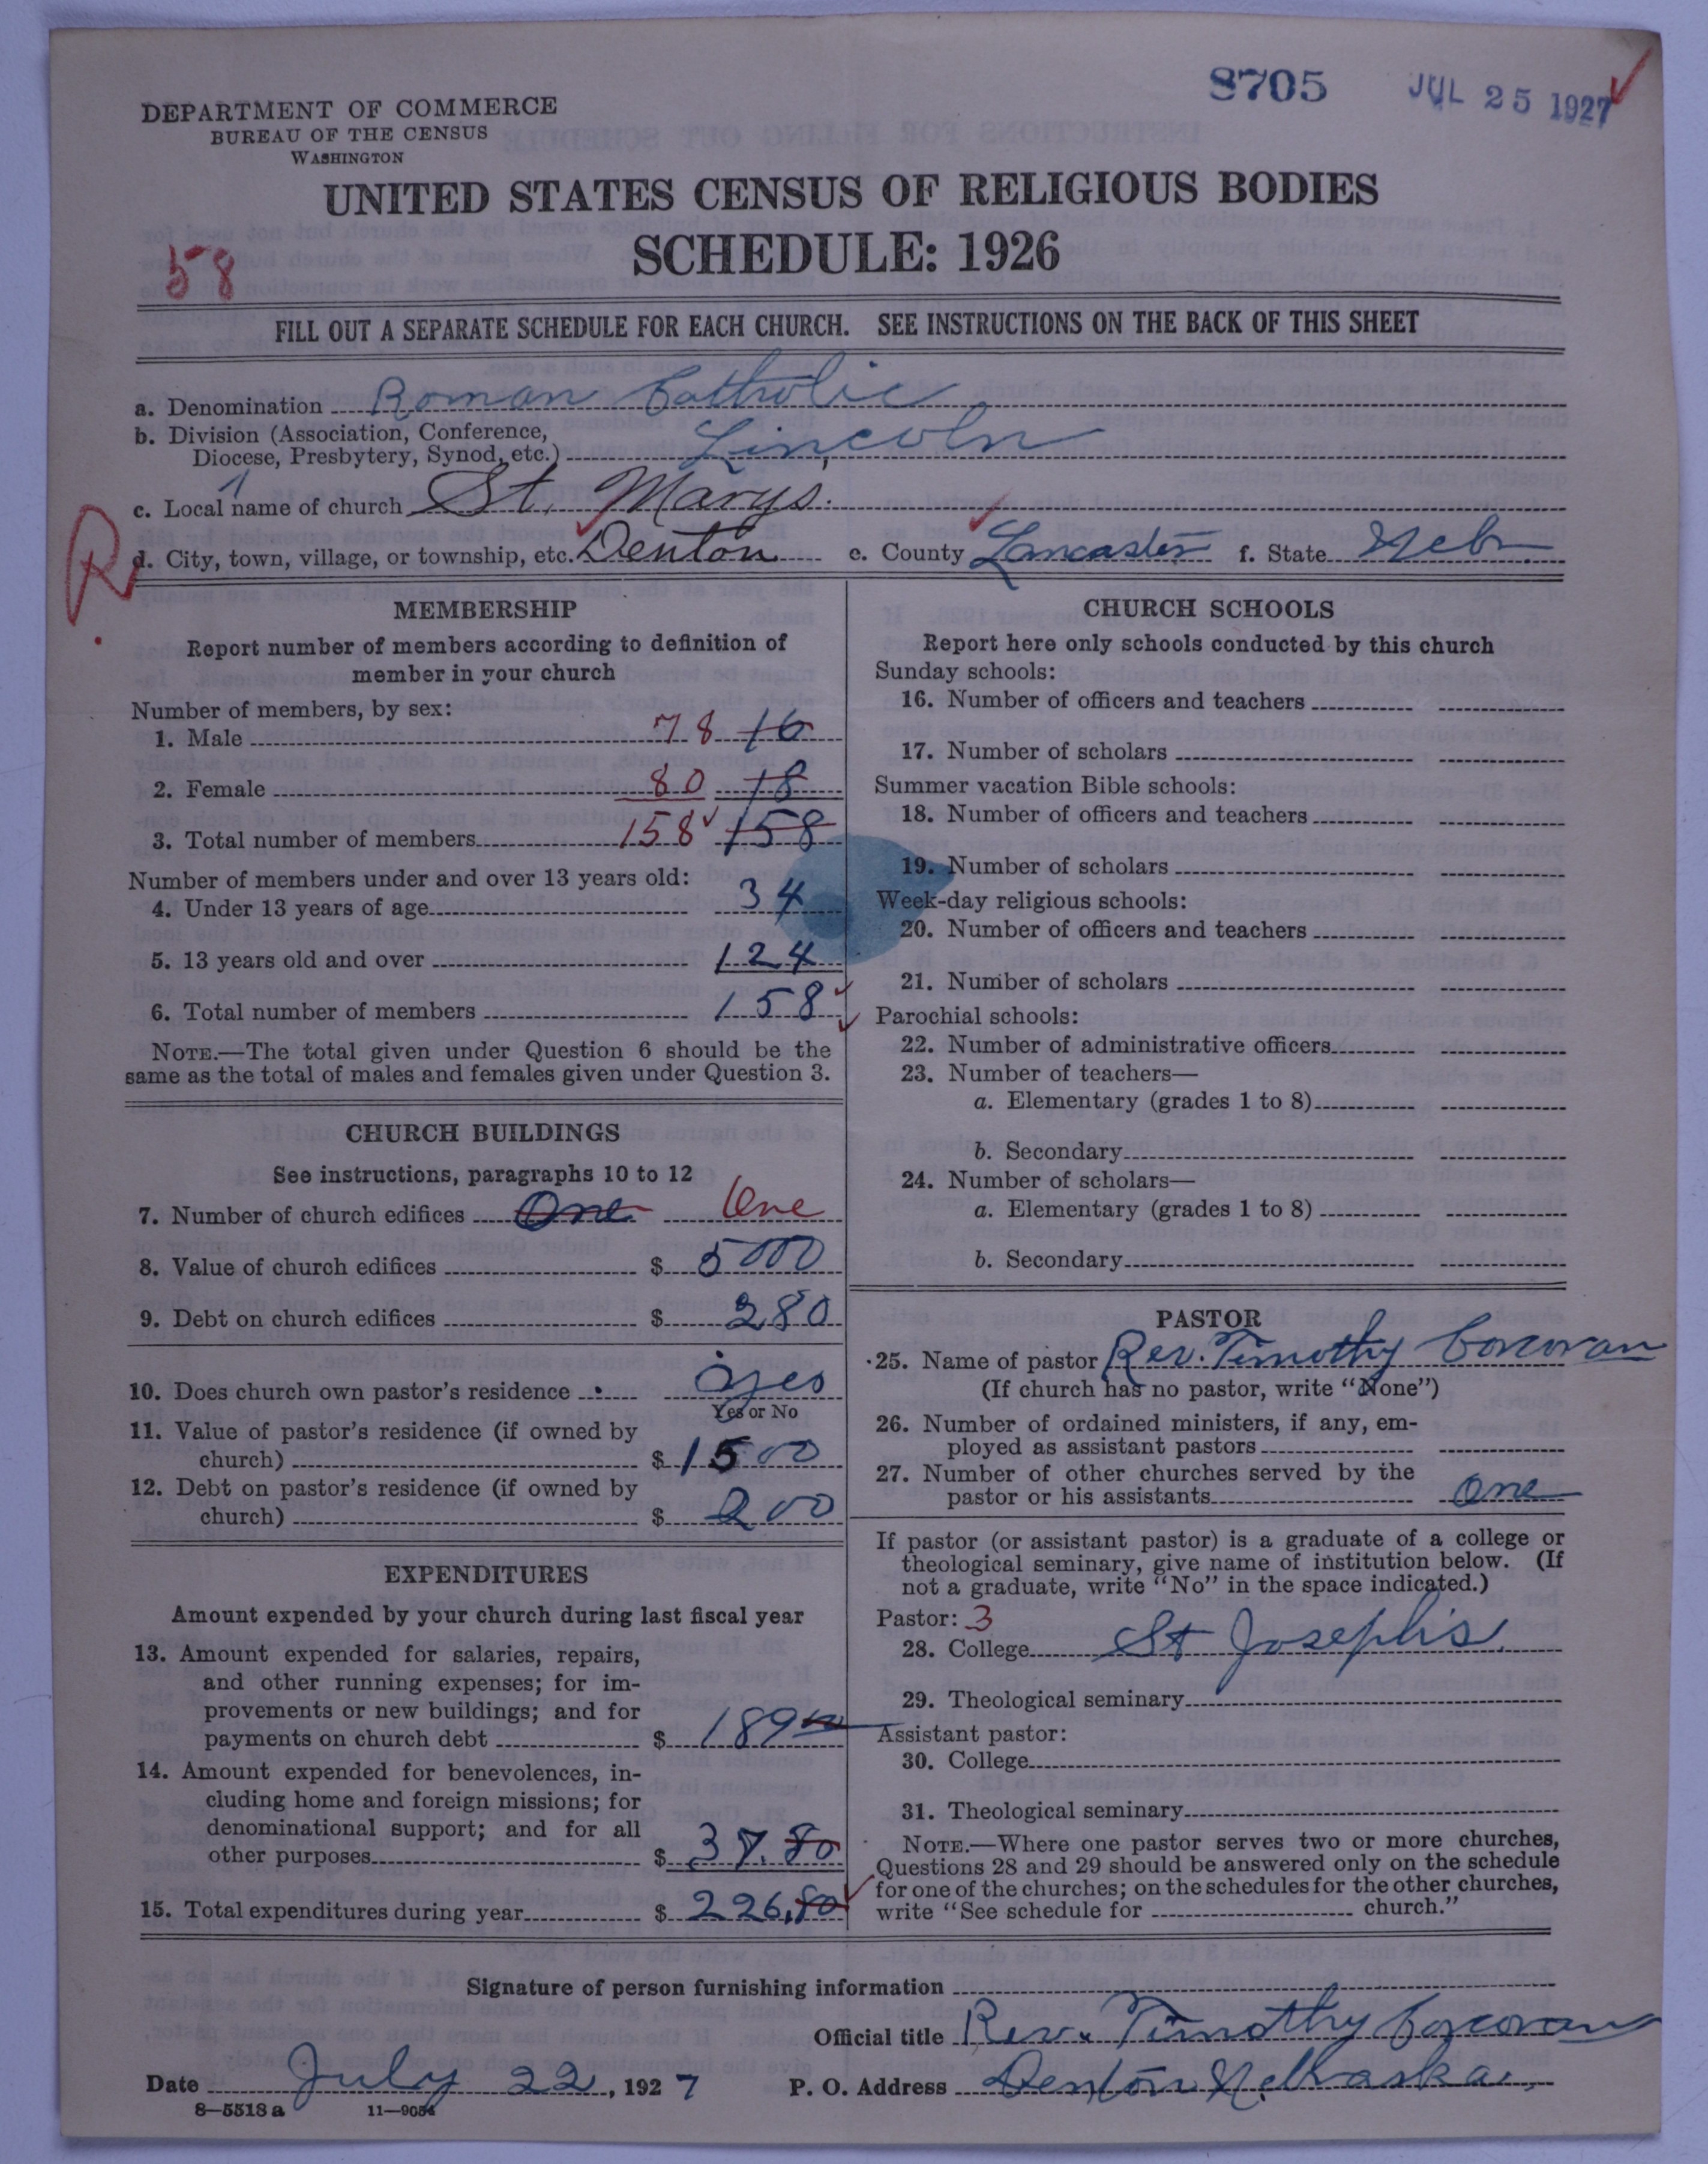 8705 JUL 25 1927
DEPARTMENT OF COMMERCE
BUREAU OF THE CENSUS
WASHINGTON
UNITED STATES CENSUS OF RELIGIOUS BODIES
SCHEDULE: 1926
58
FILL OUT A SEPARATE SCHEDULE FOR EACH CHURCH. SEE INSTRUCTIONS ON THE BACK OF THIS SHEET
a. Denomination Roman Catholic
b. Division (Association, Conference,
Diocese, Presbytery, Synod, etc.) Lincoln
c. Local name of church St. Marys.
R.
d. City, town, village, or township, etc. Denton e. County Lancaster f. State Nebr
MEMBERSHIP
Report number of members according to definition of
member in your church
Number of members, by sex:
1. Male 78 16
2. Female 80 18
3. Total number of members 158 158
Number of members under and over 13 years old:
4. Under 13 years of age 34
5. 13 years old and over 124
6. Total number of members 158
NOTE.—The total given under Question 6 should be the
same as the total of males and females given under Question 3.
CHURCH BUILDINGS
See instructions, paragraphs 10 to 12
7. Number of church edifices One One
8. Value of church edifices $ 5000
9. Debt on church edifices $ 280
10. Does church own pastor's residence yes
Yes or No
11. Value of pastor's residence (if owned by
church) $ 1500
12. Debt on pastor's residence (if owned by
church) $ 200
EXPENDITURES
Amount expended by your church during last fiscal year
13. Amount expended for salaries, repairs,
and other running expenses; for im-
provements or new buildings; and for
payments on church debt $ 189
14. Amount expended for benevolences, in-
cluding home and foreign missions; for
denominational support; and for all
other purposes $ 37.80
15. Total expenditures during year $ 226.80
CHURCH SCHOOLS
Report here only schools conducted by this church
Sunday schools:
16. Number of officers and teachers
17. Number of scholars
Summer vacation Bible schools:
18. Number of officers and teachers
19. Number of scholars
Week-day religious schools:
20. Number of officers and teachers
21. Number of scholars
Parochial schools:
22. Number of administrative officers
23. Number of teachers—
a. Elementary (grades 1 to 8)
b. Secondary
24. Number of scholars—
a. Elementary (grades 1 to 8)
b. Secondary
PASTOR
25. Name of pastor Rev. Timothy Corcoran
(If church has no pastor, write "None")
26. Number of ordained ministers, if any, em-
ployed as assistant pastors
27. Number of other churches served by the
pastor or his assistants One
If pastor (or assistant pastor) is a graduate of a college or
theological seminary, give name of institution below. (If
not a graduate, write "No" in the space indicated.)
Pastor: 3
28. College St Joseph's
29. Theological seminary
Assistant pastor:
30. College
31. Theological seminary
NOTE.—Where one pastor serves two or more churches,
Questions 28 and 29 should be answered only on the schedule
for one of the churches; on the schedules for the other churches,
write "See schedule for church."
Signature of person furnishing information
Official title Rev. Timothy Corcoran
Date July 22, 1927 P. O. Address Denton Nebraska.
8—5518 a 11—9054